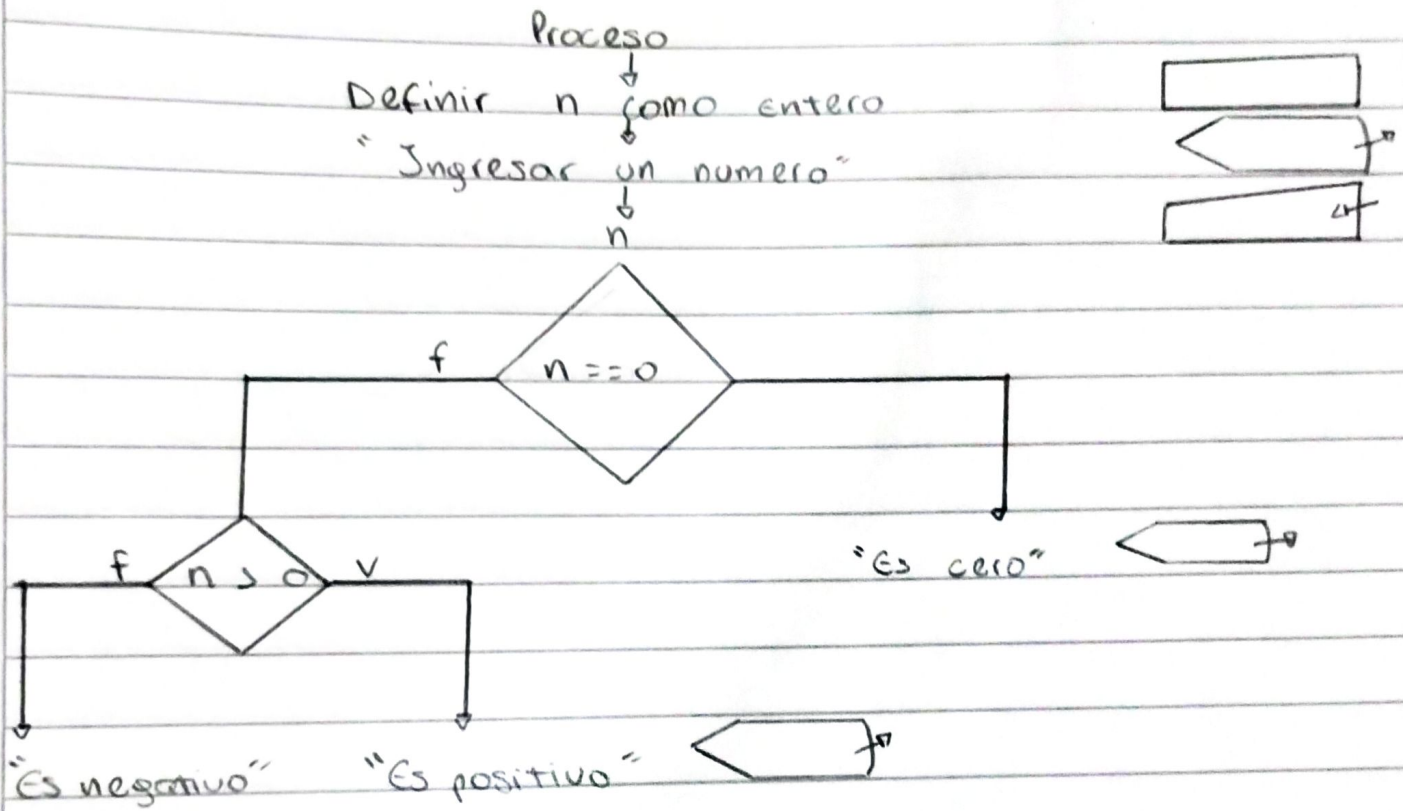 Proceso
Definir n como entero
"Ingresar un numero"
n
f
n == 0
f
n > 0
v
"Es cero"
"Es negativo"
"Es positivo"